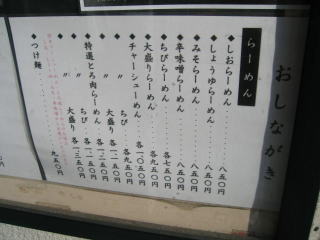 おしながき
らーめん
◆しおらーめん……………八五〇円
◆しょうゆらーめん…………八五〇円
◆みそらーめん……………八五〇円
◆辛味噌らーめん……………八五〇円
◆ちびらーめん……………各七五〇円
◆大盛りらーめん…………各九五〇円
◆チャーシューめん………各一〇五〇円
◆〃 ちび………各九五〇円
◆〃 大盛り 各一一五〇円
◆特選とろ肉らーめん 各一二五〇円
◆〃 ちび 各一一五〇円
◆〃 大盛り 各一三五〇円
◆つけ麺……………九五〇円